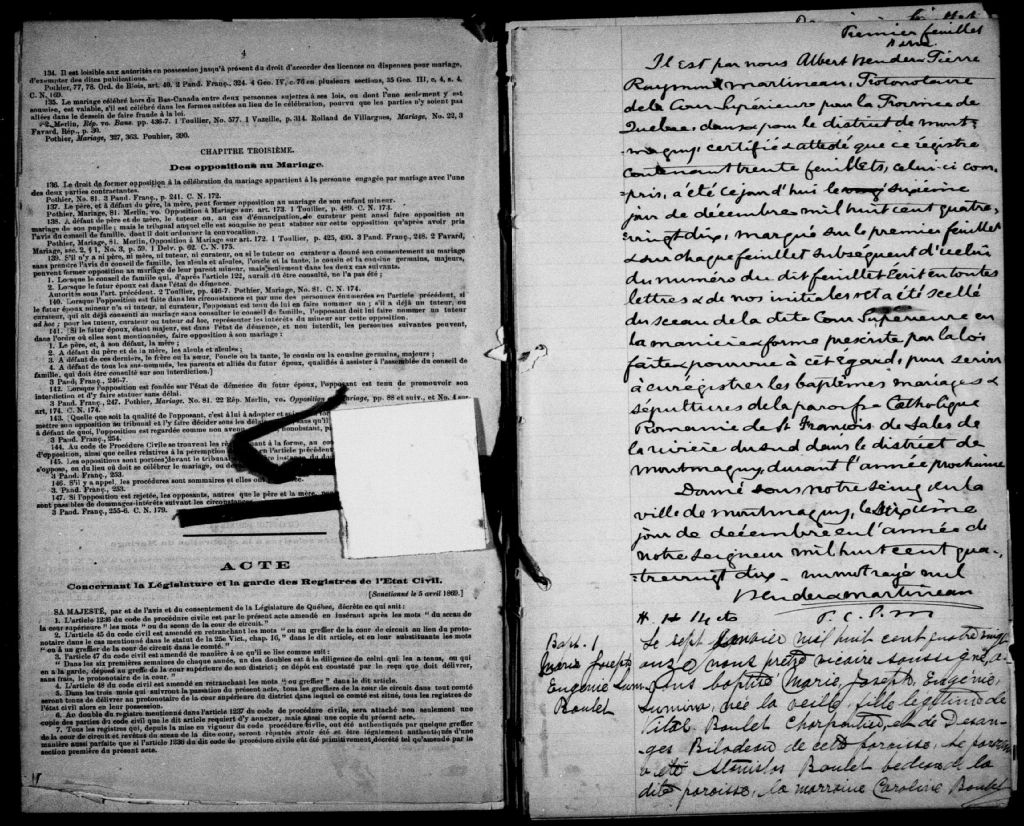 4
134. Il est loisible aux autorités en possession jusqu'à présent du droit d'accorder des licences ou dispenses pour mariage,
d'exempter des dites publications.
Pothier, 77, 78. Ord. de Blois, art. 40. 2 Pand. Franç., 324. 4 Geo. IV, c. 76 en plusieurs sections, 35 Geo. III, c. 4, s. 4.
C. N. 169.
135. Le mariage célébré hors du Bas-Canada entre deux personnes sujettes à ses lois, ou dont l'une seulement y est
soumise, est valable, s'il est célébré dans les formes usitées au lieu de la célébration, pourvu que les parties n'y soient pas
allées dans le dessein de faire fraude à la loi.
2 Merlin, Rép. vo. Bans. pp. 436-7. 1 Toullier, No. 577. 1 Vazeille, p. 314. Rolland de Villargues, Mariage, No. 22, 3
Favard, Rép., p. 30.
Pothier, Mariage, 327, 363. Pouhier, 390.
CHAPITRE TROISIÈME.
Des oppositions au Mariage.
136. Le droit de former opposition à la célébration du mariage appartient à la personne engagée par mariage avec l'une
des deux parties contractantes.
Pothier, No. 81. 3 Pand. Franç., p. 241. C. N. 172.
137. Le père, et à défaut du père, la mère, peut former opposition au mariage de son enfant mineur.
Pothier, Mariage, 81. Merlin, vo. Opposition à Mariage sur art. 173. 1 Toullier, p. 489. C. N. 173.
138. A défaut de père et de mère, le tuteur ou, au cas d'émancipation, le curateur peut aussi faire opposition au
mariage de son pupille ; mais le tribunal auquel elle est soumise ne peut statuer sur cette opposition qu'après avoir pris
l'avis du conseil de famille, dont il doit ordonner la convocation.
Pothier, Mariage, 81. Merlin, Opposition à Mariage sur art. 172. 1 Toullier, p. 425, 490. 3 Pand. Franç., 248. 2 Favard,
Mariage, sec. 2, § 1, No. 3, p. 59. 1 Delv. p. 62. C. N. 175.
139. S'il n'y a ni père, ni mère, ni tuteur, ni curateur, ou si le tuteur ou curateur a donné son consentement au mariage
sans prendre l'avis du conseil de famille, les aïeuls et aïeules, l'oncle et la tante, le cousin et la cousine germains, majeurs,
peuvent former opposition au mariage de leur parent mineur, mais seulement dans les deux cas suivants.
1. Lorsque le conseil de famille qui, d'après l'article 122, aurait dû être consulté, ne l'a pas été ;
2. Lorsque le futur époux est dans l'état de démence.
Autorités sous l'art. précédent. 2 Toullier, pp. 446-7. Pothier, Mariage, No. 81. C. N. 174.
140. Lorsque l'opposition est faite dans les circonstances et par une des personnes énumérées en l'article précédent, si
le futur époux mineur n'a ni tuteur, ni curateur, l'opposant est tenu de lui en faire nommer un ; s'il a déjà un tuteur, ou
curateur, qui ait déjà consenti au mariage sans consulter le conseil de famille, l'opposant doit lui faire nommer un tuteur
ad hoc ; pour les tuteur, curateur ou tuteur ad hoc, représenter les intérêts du mineur sur cette opposition.
141. [Si le futur époux, étant majeur, est dans l'état de démence, et non interdit, les personnes suivantes peuvent,
dans l'ordre où elles sont mentionnées, faire opposition à son mariage :
1. Le père, et à son défaut, la mère ;
2. A défaut du père et de la mère, les aïeuls et aïeules ;
3. A défaut de ces derniers, le frère ou la sœur, l'oncle ou la tante, le cousin ou la cousine germains, majeurs ;
4. A défaut de tous les sus-nommés, les parents et alliés du futur époux, qualifiés à assister à l'assemblée du conseil de
famille, qui doit être consulté sur son interdiction.]
3 Pand. Franç., 246-7.
142. Lorsque l'opposition est fondée sur l'état de démence du futur époux, l'opposant est tenu de promouvoir son
interdiction et d'y faire statuer sans délai.
3 Pand. Franç., 247. Pothier, Mariage, No. 81. 22 Rép. Merlin, vo. Opposition riage, pp. 88 et suiv., et No. 4 sur
art. 174. C. N. 174.
143. [Quelle que soit la qualité de l'opposant, c'est à lui à adopter et sui
mettre son opposition au tribunal et l'y faire décider sous les délais
à défaut de quoi, l'opposition est regardée comme non avenue
3 Pand. Franç., 254.
144. Au code de Procédure Civile se trouvent les rè ant à la forme, au co
d'opposition, ainsi que celles relatives à la péremption l'article précédent
145. Les oppositions sont portées devant le tribunal
s'oppose, ou du lieu où doit se célébrer le mariage, ou de
3 Pand. Franç., 253.
146. S'il y a appel, les procédures sont sommaires et elles ont
3. Pand. Franç., 253.
147. Si l'opposition est rejetée, les opposants, autres que le père et la mère, pe
sont passibles de dommages-intérêts suivant les circonstances
3 Pand. Franç., 255-6. C. N. 179.
ACTE
Concernant la Législature et la garde des Registres de l'Etat Civil.
[Sanctionné le 5 avril 1869.]
SA MAJESTÉ, par et de l'avis et du consentement de la Législature de Québec, décrète ce qui suit :
1. L'article 1236 du code de procédure civile est par le présent acte amendé en insérant après les mots "du sceau de
la cour supérieure" les mots "ou du sceau de la cour de circuit."
2. L'article 45 du code civil est amendé en retranchant les mots "ou au greffier de la cour de circuit au lieu du proto-
notaire dans le cas mentionné dans le statut de la 25e Vict., chap. 16," dans le dit article, et en leur substituant les mots
"ou à un greffier de la cour de circuit dans le comté."
3. L'article 47 du code civil est amendé de manière à ce qu'il se lise comme suit:
"Dans les six premières semaines de chaque année, un des doubles est à la diligence de celui qui les a tenus, ou qui
en a la garde, déposé au greffe de la cour supérieure de son district; ce dépôt est constaté par le reçu que doit délivrer,
sans frais, le protonotaire de la cour."
4. L'article 48 du code civil est amendé en retranchant les mots "ou greffier" dans le dit article.
5. Dans les trois mois qui suivront la passation du présent acte, tous les greffiers de la cour de circuit dans tout comté
seront tenus de délivrer au protonotaire de la cour supérieure du district dans lequel ce comté est situé, tous les registres de
l'état civil alors en leur possession.
6. Au double du registre mentionné dans l'article 1237 du code de procédure civile, sera attaché non seulement une
copie des parties du code civil que le dit article requiert d'y annexer, mais aussi une copie du présent acte.
7. Tous les registres qui, depuis la mise en vigueur du code procédure civile, ont été authentiqués par quelque greffier
de la cour de circuit et revêtus du sceau de la dite cour, seront réputés avoir été et être légalement authentiqués d'une
manière aussi parfaite que si l'article 1236 du dit code de procédure civile eût été primitivement décrété tel qu'amendé par la
section première du présent acte.
Premier feuillet
Il est par nous Albert Bender Pierre
Raymond Martineau, Protonotaire
de la Cour Supérieure pour la Province de
Québec, dans & pour le district de Mont-
magny, certifié & attesté que ce registre
contenant trente feuillets, celui-ci com-
pris, a été ce jourd'hui le sixième
jour de décembre mil huit cent quatre
vingt dix, marqué sur le premier feuillet
& sur chaque feuillet subséquent d'icelui
du numéro du dit feuillet écrit en toutes
lettres & de nos initiales et a été scellé
du sceau de la dite Cour Supérieure en
la manière & forme prescrite par la loi
faite & pourvue à cet égard, pour servir
à enregistrer les baptêmes mariages &
sépultures de la paroisse Catholique
Romaine de St François de Sales de
la rivière du sud dans le district de
Montmagny, durant l'année prochaine
Donné sous notre seing en la
ville de Montmagny, le sixième
jour de décembre en l'année de
notre Seigneur mil huit cent qua-
trevingt dix - un mot rayé nul
Bender & Martineau
P. C. S. M
Bapt. 1
Marie Joseph
Eugénie Lum-
Boulet
Le sept Janvier mil huit cent quatre vingt
onze nous prêtre vicaire soussigné, a-
vons baptisé Marie, Joseph, Eugénie,
Lumina, née la veille, fille légitime de
Vital Boulet Charpentier, et de Desan-
ges Bilodeau de cette paroisse. Le parrain
a été Stanislas Boulet bedeau de la
dite paroisse, la marraine Caroline Boulet